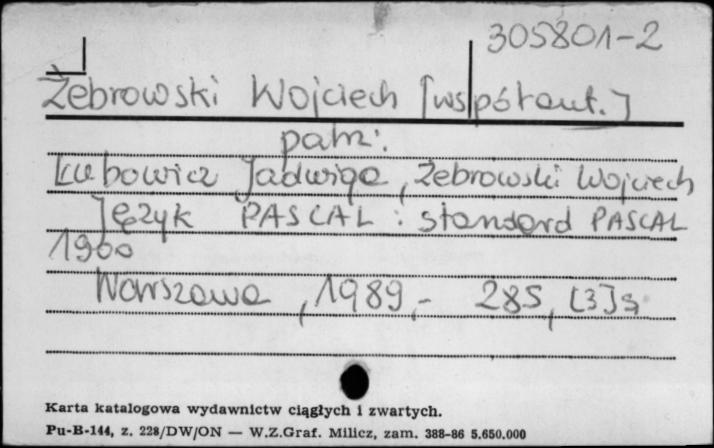 305801-2
Żebrowski Wojciech [współaut.]
patrz:
Lubowicz Jadwiga, Żebrowski Wojciech
Język PASCAL : standard PASCAL
1900
Warszawa, 1989.- 285, [3] s.
Karta katalogowa wydawnictw ciągłych i zwartych.
Pu-B-144, z. 228/DW/ON — W.Z.Graf. Milicz, zam. 388-86 5.650.000